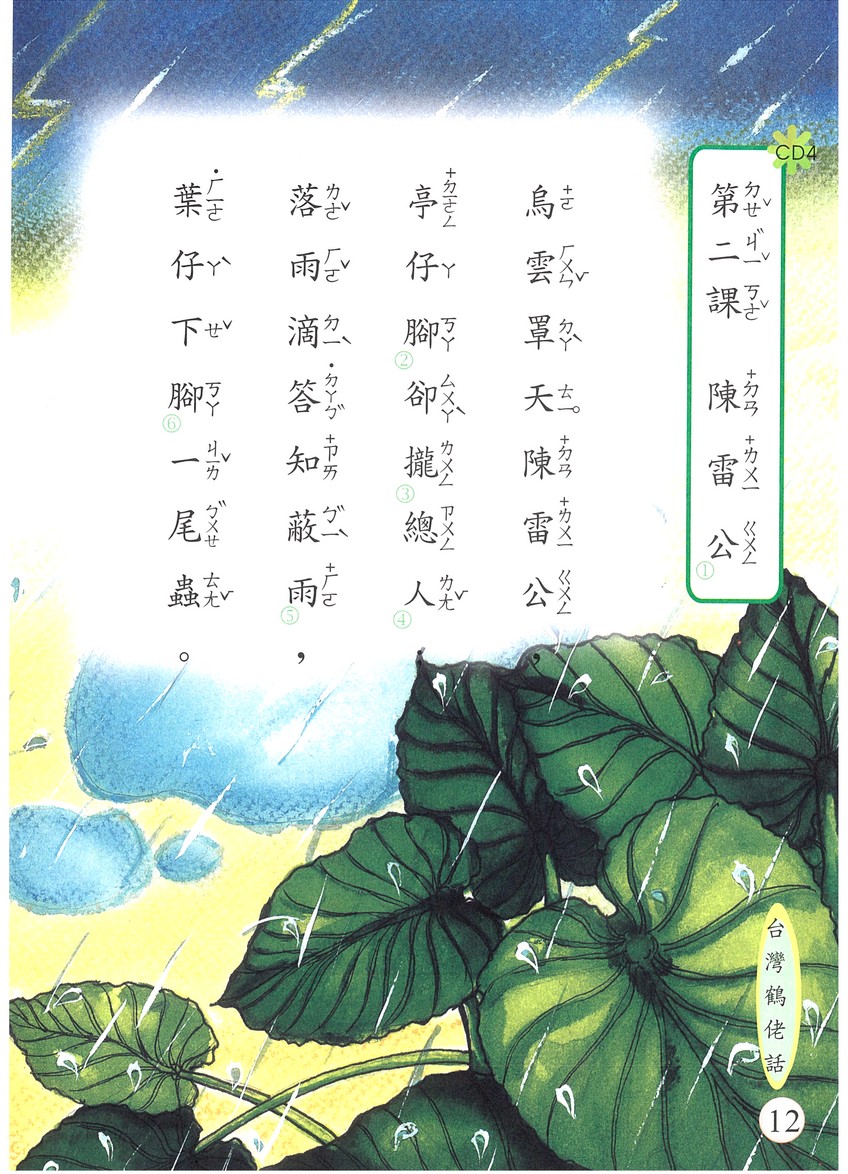 CD4
第二課 陳雷公①
烏雲罩天陳雷公，
亭仔腳②卻攏③總人④，
落雨滴答知蔽雨⑤，
葉仔下腳⑥一尾蟲。
台灣鶴佬話
12